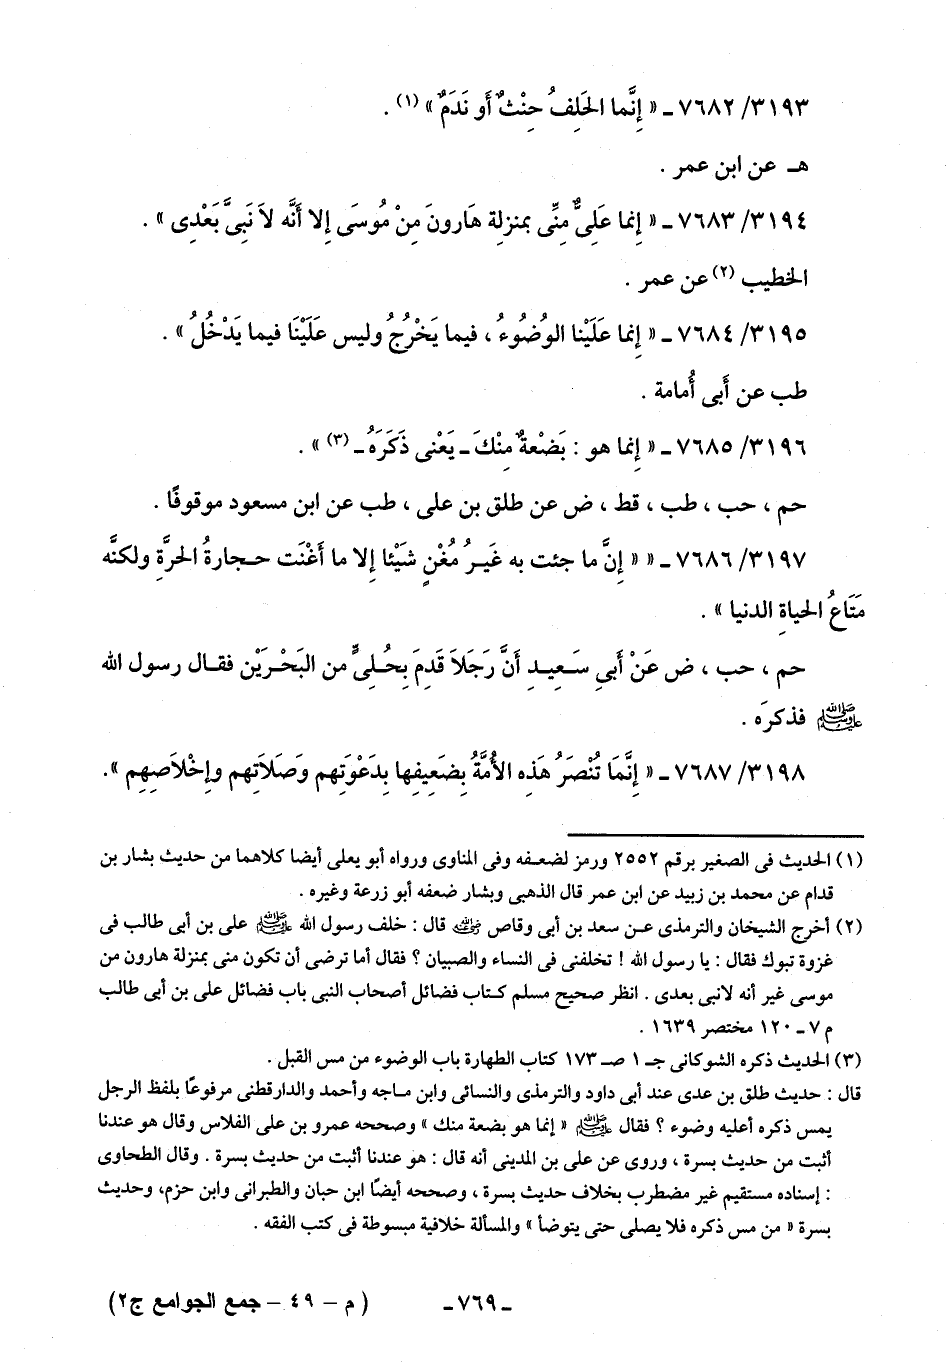 ٣١٩٣/ ٧٦٨٢ ـ « إِنَّما الحَلِفُ حِنْثٌ أَو نَدَمٌ » (١) .
هـ عن ابن عمر .
٣١٩٤/ ٧٦٨٣ ـ « إِنما عَلَىٌّ مِنِّى بمنزلة هَارونَ مِنْ مُوسَى إِلا أَنَّه لاَ نَبِىَّ بَعْدِى » .
الخطيب (٢) عن عمر .
٣١٩٥/ ٧٦٨٤ ـ « إِنما عَلَيْنا الوُضُوءُ ، فيما يَخْرُجُ وليس عَلَيْنَا فيما يَدْخُلُ » .
طب عن أَبى أُمامة .
٣١٩٦/ ٧٦٨٥ ـ « إِنما هو : بَضْعةٌ مِنْكَ ـ يَعْنى ذَكَرَهُ ـ (٣) » .
حم ، حب ، طب ، قط ، ض عن طلق بن على ، طب عن ابن مسعود موقوفًا .
٣١٩٧/ ٧٦٨٦ ـ « « إِنَّ ما جئت به غَيـرُ مُغْنٍ شَيْئا إِلا ما أَغْنَت حـجارةُ الحرَّةِ ولكنَّه
مَتَاعُ الحياةِ الدنيا » .
حم ، حب ، ض عَنْ أَبىِ سَـعِيـدِ أَنَّ رَجُلاَ قَدِمَ بِحُـلِىٍّ من البَحْـرَيْن فقـال رسـول الله
ﷺ فذكرَه .
٣١٩٨/ ٧٦٨٧ ـ « إِنَّمَا تُنْصَرُ هَذِه الأُمَّةُ بِضَعِيفِها بِدَعْوَتِهم وَصَلاَتِهم وإِخْلاَصِهِم ».
(١) الحديث فى الصغير برقم ٢٥٥٢ ورمز لضعـفه وفى المناوى ورواه أبو يعلى أيضا كلاهما من حديث بشار بن
قدام عن محمد بن زبيد عن ابن عمر قال الذهبى وبشار ضعفه أبو زرعة وغيره .
(٢) أخرج الشيخان والترمذى عـن سعد بن أبى وقاص ﵁ قال : خلف رسول الله ﷺ على بن أبى طالب فى
غزوة تبوك فقال : يا رسول الله ! تخلفنى فى النساء والصبيان ؟ فقال أما ترضى أن تكون منى بمنزلة هارون من
موسى غير أنه لانبى بعدى . انظر صحيح مسلم كـتاب فضائل أصحاب النبى باب فضائل على بن أبى طالب
م ٧ ـ ١٢٠ مختصر ١٦٣٩ .
(٣) الحديث ذكره الشوكانى جـ ١ صـ ١٧٣ كتاب الطهارة باب الوضوء من مس القبل .
قال : حديث طلق بن عدى عند أبى داود والترمذى والنسائى وابن مـاجه وأحمد والدارقطنى مرفوعًا بلفظ الرجل
يمس ذكره أعليه وضوء ؟ فقال ﷺ « إنما هو بضعة منك » وصححه عمرو بن على الفلاس وقال هو عندنا
أثبت من حديث بسرة ، وروى عن على بن المدينى أنه قال : هو عندنا أثبت من حديث بسرة . وقال الطحاوى
: إسناده مستقيم غير مضطرب بخلاف حديث بسرة ، وصححه أيضًا ابن حبان والطبرانى وابن حزم، وحديث
بسرة « من مس ذكره فلا يصلى حتى يتوضأ » والمسألة خلافية مبسوطة فى كتب الفقه .
ـ ٧٦٩ ـ
( م – ٤٩ – جمع الجوامع ج٢)